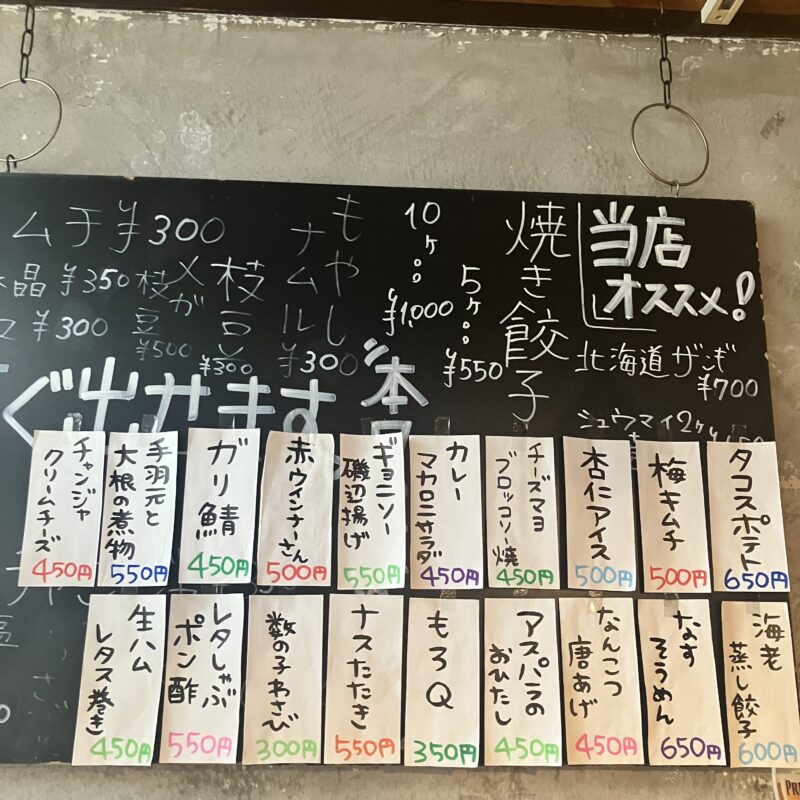 当店
オススメ!
北海道ザンギ
¥700
シュウマイ2ケ
焼き餃子
10ケ。。
¥1,000
5ケ。。
¥550
もやし
ナムル
¥300
枝豆
¥300
メガ
枝豆
¥500
ムチ ¥300
晶 ¥350
¥300
ぐ出せます
タコスポテト
650円
梅キムチ
500円
杏仁アイス
500円
チーズマヨ
ブロッコリー焼
450円
カレー
マカロニサラダ
450円
ギョニソー
磯辺揚げ
550円
赤ウインナーさん
500円
ガリ鯖
450円
手羽元と
大根の煮物
550円
チャンジャ
クリームチーズ
450円
海老
蒸し餃子
600円
なす
そうめん
650円
なんこつ
唐あげ
450円
アスパラの
おひたし
450円
もろQ
350円
ナスたたき
550円
数の子わさび
300円
レタしゃぶ
ポン酢
550円
生ハム
レタス巻き
450円